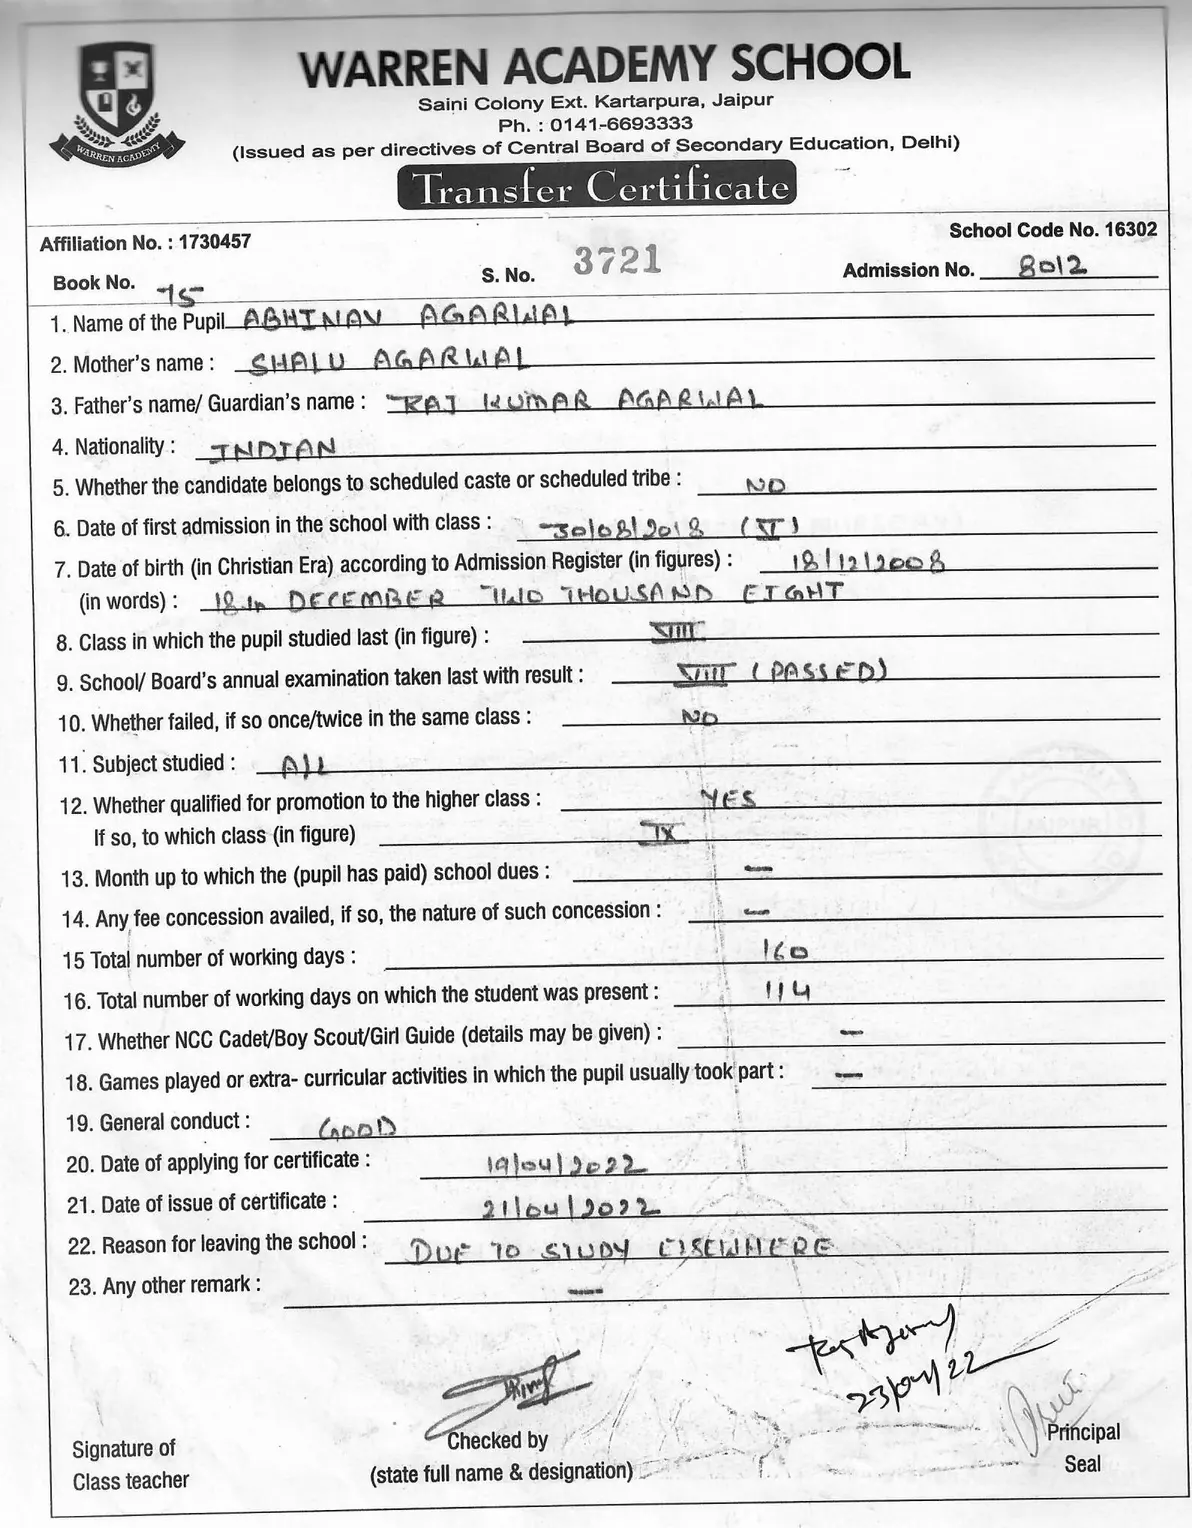 WARREN ACADEMY SCHOOL
Saini Colony Ext. Kartarpura, Jaipur
Ph. : 0141-6693333
(Issued as per directives of Central Board of Secondary Education, Delhi)
WARREN ACADEMY
Transfer Certificate
Affiliation No. : 1730457 School Code No. 16302
Book No. 75 S. No. 3721 Admission No. 8012
1. Name of the Pupil ABHINAV AGARWAL
2. Mother's name : SHALU AGARWAL
3. Father's name/ Guardian's name : RAJ KUMAR AGARWAL
4. Nationality : INDIAN
5. Whether the candidate belongs to scheduled caste or scheduled tribe : NO
6. Date of first admission in the school with class : 30/08/2018 (V)
7. Date of birth (in Christian Era) according to Admission Register (in figures) : 18/12/2008
(in words) : 18th DECEMBER TWO THOUSAND EIGHT
8. Class in which the pupil studied last (in figure) : VIII
9. School/ Board's annual examination taken last with result : VIII (PASSED)
10. Whether failed, if so once/twice in the same class : NO
11. Subject studied : ALL
12. Whether qualified for promotion to the higher class : YES
If so, to which class (in figure) IX
13. Month up to which the (pupil has paid) school dues : —
14. Any fee concession availed, if so, the nature of such concession : —
15 Total number of working days : 160
16. Total number of working days on which the student was present : 114
17. Whether NCC Cadet/Boy Scout/Girl Guide (details may be given) : —
18. Games played or extra- curricular activities in which the pupil usually took part : —
19. General conduct : GOOD
20. Date of applying for certificate : 19/04/2022
21. Date of issue of certificate : 21/04/2022
22. Reason for leaving the school : DUE TO STUDY ELSEWHERE
23. Any other remark : —
23/04/22
Signature of
Class teacher
Checked by
(state full name & designation)
Principal
Seal